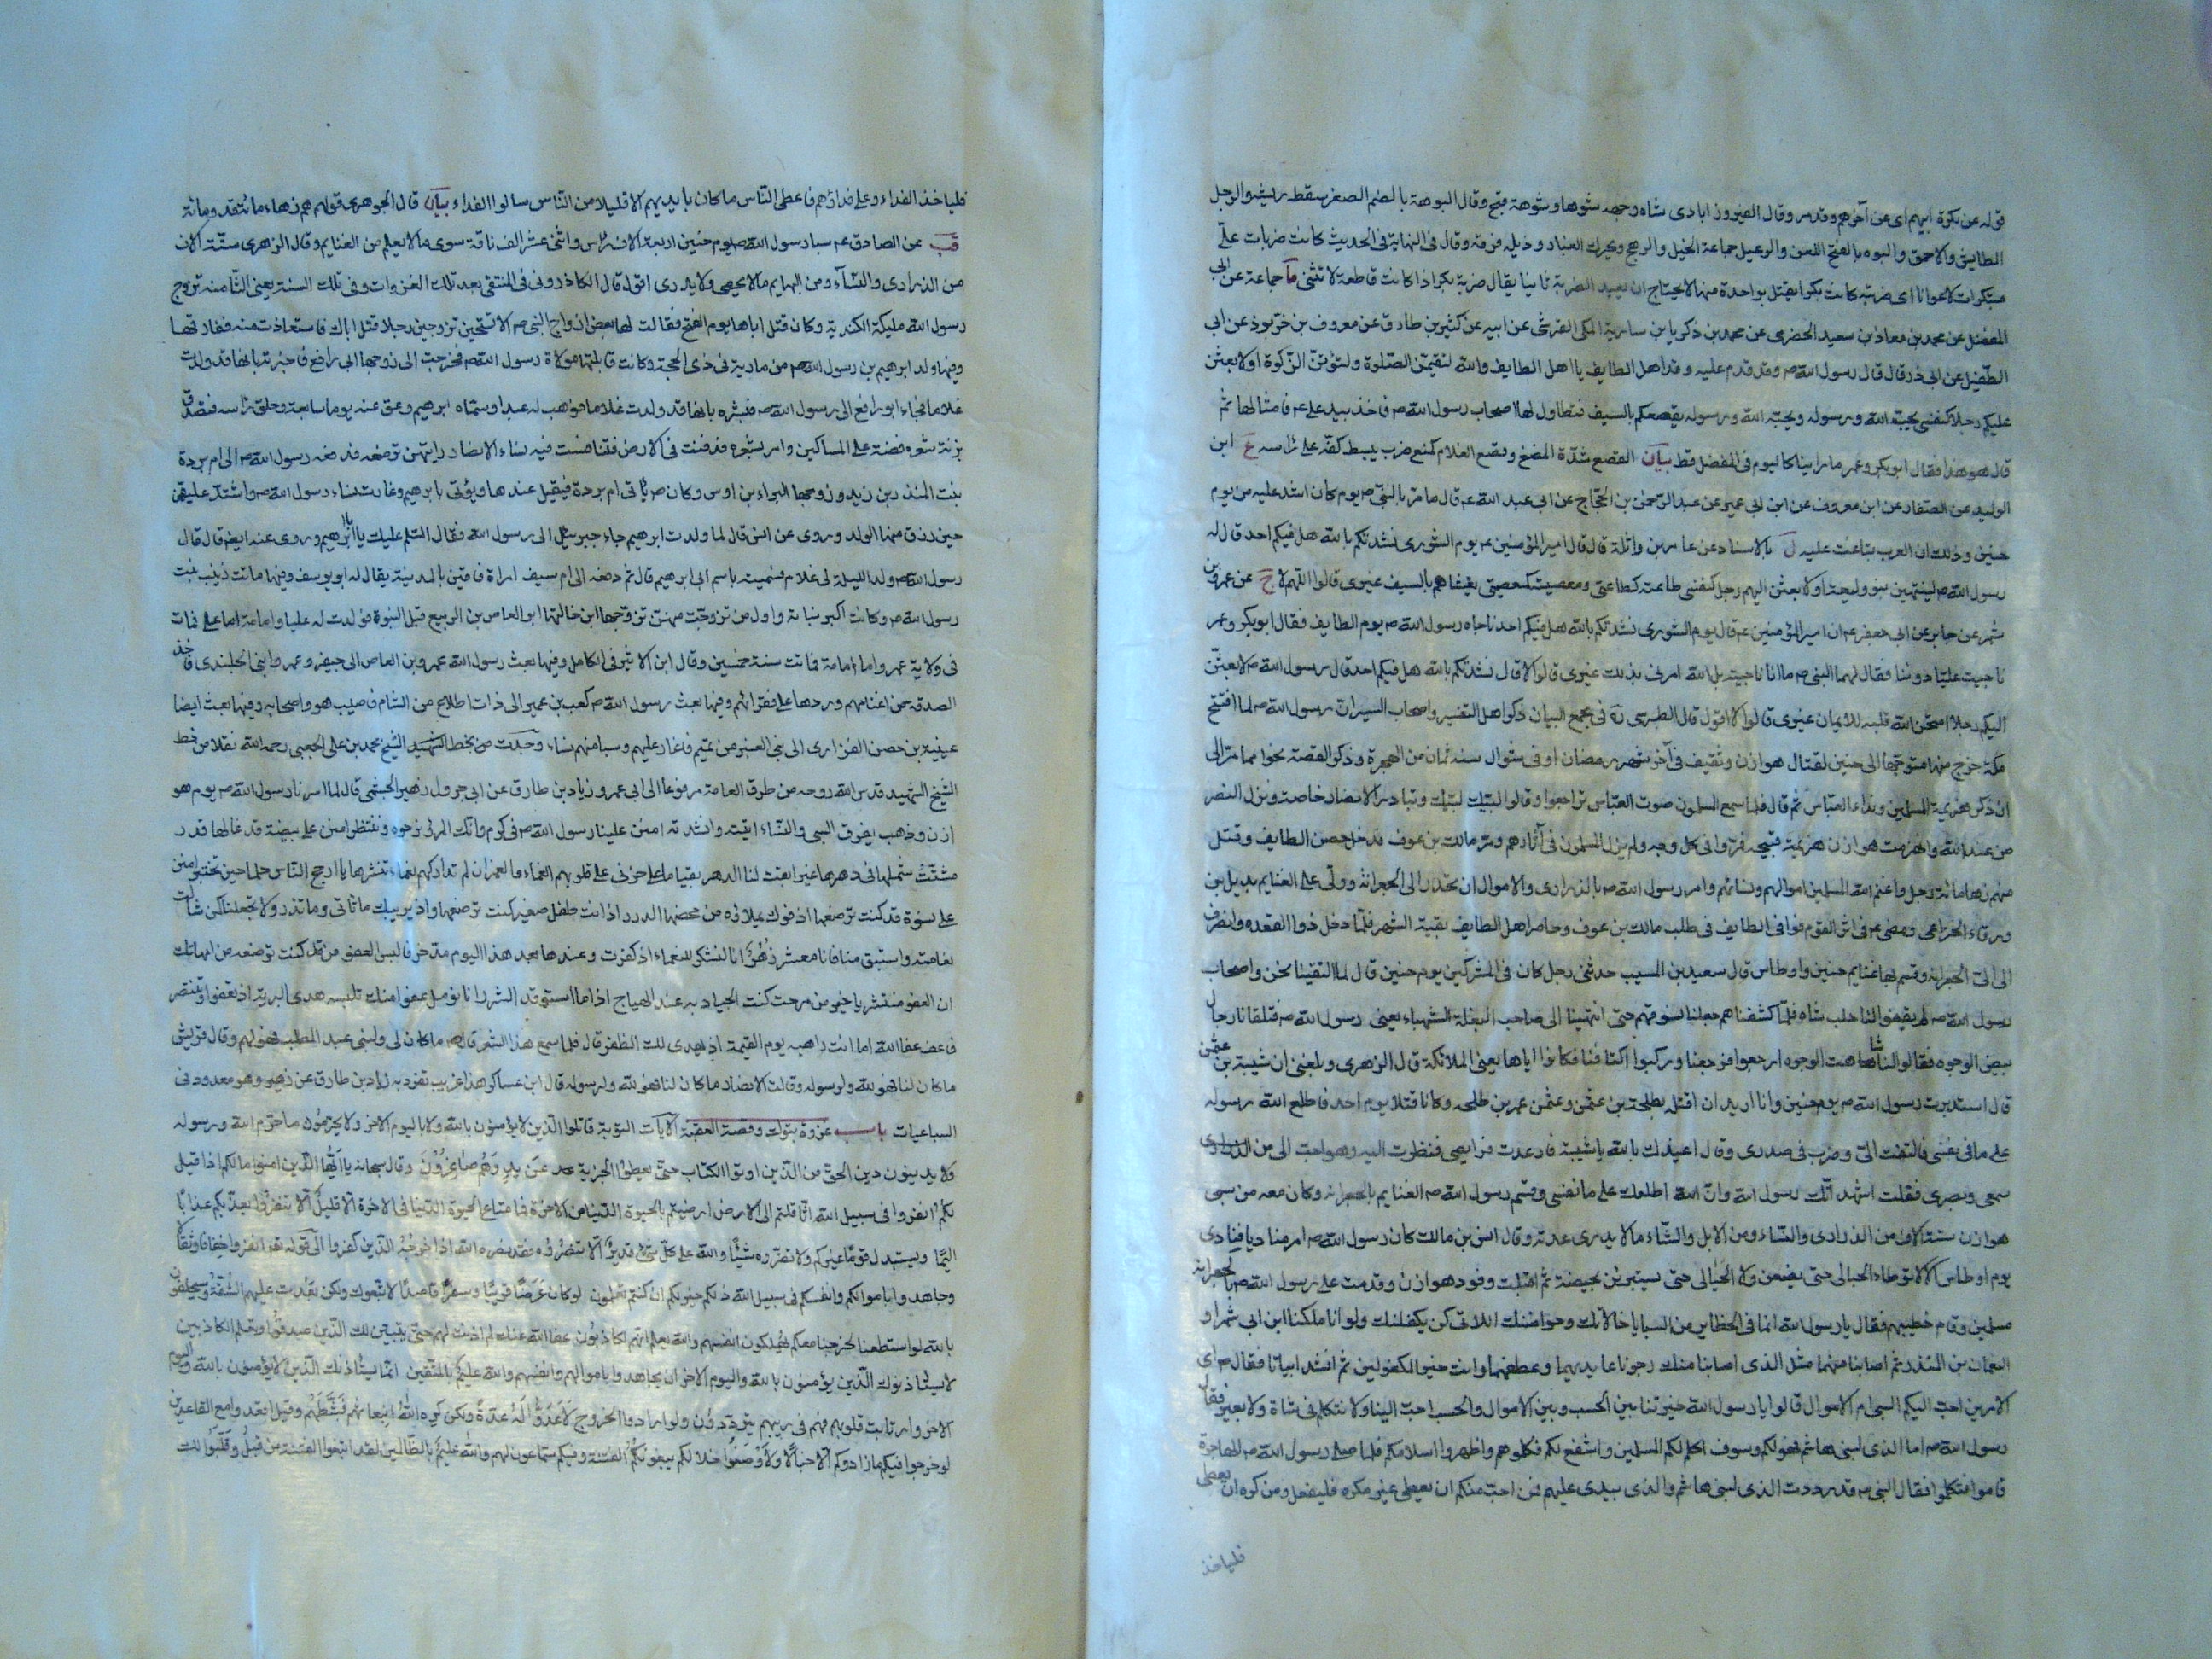 قوله عن بكرة ابيهم اى عن آخرهم وقد مر وقال الفيروزابادى شاه وجهه شوها وشوهة قبح وقال البوهة بالضم الصقر سقط ريشه والرجل
الطايش والاحمق والبوه بالفتح اللعن والرعيل جماعة الخيل والرهج ويحرك الغبار وذيله فرقه وقال فى النهاية فى الحديث كانت ضربات على
مبتكرات لا عونا اى ضربته كانت بكرا يقتل بواحدة منها لا يحتاج ان يعيد الضربة ثانيا يقال ضربة بكر اذا كانت قاطعة لا تثنى ما جماعة عن ابى
المفضل عن محمد بن معاذ بن سعيد الحضرمى عن محمد بن زكريا بن سارية المكى القرشى عن ابيه عن كثير بن طارق عن معروف بن خربوذ عن ابى
الطفيل عن ابى ذر قال قال رسول الله ص وقد قدم عليه وفد اهل الطايف يا اهل الطايف والله لتقيمن الصلوة ولتؤتن الزكوة او لابعثن
عليكم رجلا كنفسى يحب الله ورسوله ويحبه الله ورسوله يقصعكم بالسيف فتطاول لها اصحاب رسول الله ص فاخذ بيد على ع فاشالها ثم
قال هو هذا فقال ابو بكر وعمر ما راينا كاليوم فى الفضل قط بيان القصع شدة المضغ وقصع الغلام كمنع ضرب ببسط كفه على راسه ع ابن
الوليد عن الصفار عن ابن معروف عن ابن ابى عمير عن عبد الرحمن بن الحجاج عن ابى عبد الله ع قال ما مر بالنبى ص يوم كان اشد عليه من يوم
حنين وذلك ان العرب تباغت عليه ل بالاسناد عن عامر بن واثلة قال قال امير المؤمنين ع يوم الشورى نشدتكم بالله هل فيكم احد قال له
رسول الله ص لينتهين بنو وليعة او لابعثن اليهم رجلا كنفسى طاعته كطاعتى ومعصيته كمعصيتى يغشاهم بالسيف غيرى قالوا اللهم لا ج عن عمرو بن
شمر عن جابر عن ابى جعفر ع ان امير المؤمنين ع قال يوم الشورى نشدتكم بالله هل فيكم احد ناجاه رسول الله ص يوم الطايف فقال ابو بكر وعمر
ناجيت عليا دوننا فقال لهما النبى ص ما انا ناجيته بل الله امرنى بذلك غيرى قالوا لا قال نشدتكم بالله هل فيكم احد قال رسول الله ص لابعثن
اليكم رجلا امتحن الله قلبه للايمان غيرى قالوا لا اقول قال الطبرسى ره فى مجمع البيان ذكر اهل التفسير واصحاب السير ان رسول الله ص لما افتتح
مكة خرج منها متوجها الى حنين لقتال هوازن وثقيف فى آخر شهر رمضان او فى شوال سنة ثمان من الهجرة وذكر القصة نحوا مما مر الى
ان ذكر هزيمة المسلمين ونداء العباس ثم قال فلما سمع المسلمون صوت العباس تراجعوا وقالوا لبيك لبيك وتبادر الانصار خاصة ونزل النصر
من عند الله وانهزمت هوازن هزيمة قبيحة فمروا فى كل وجه ولم يزل المسلمون فى آثارهم ومر مالك بن عوف فدخل حصن الطايف وقتل
منهم زهاء مائة رجل واغنم الله المسلمين اموالهم ونساءهم وامر رسول الله ص بالذرارى والاموال ان تحدر الى الجعرانة وولى على الغنايم بديل بن
ورقاء الخزاعى ومضى ع فى اثر القوم فوافى الطايف فى طلب مالك بن عوف وحاصر اهل الطايف بقية الشهر فلما دخل ذو القعدة وانصرف
الى الجعرانة وقسم بها غنايم حنين واوطاس قال سعيد بن المسيب حدثنى رجل كان فى المشركين يوم حنين قال لما التقينا نحن واصحاب
رسول الله ص لم يقفوا لنا حلب شاه فلما كشفناهم جعلنا نسوقهم حتى انتهينا الى صاحب البغلة الشهباء يعنى رسول الله ص فتلقانا رجال
بيض الوجوه فقالوا لنا شاهت الوجوه ارجعوا فرجعنا وركبوا اكتافنا فكانوا اياها يعنى الملائكة قال الزهرى وبلغنى ان شيبة بن عثمن
قال استدبرت رسول الله ص يوم حنين وانا اريد ان اقتله بطلحة بن عثمن وعثمن عمر بن طلحه وكانا قتلا يوم احد فاطلع الله رسوله
على ما فى نفسى فالتفت الى وضرب فى صدرى وقال اعيذك بالله يا شيبة فارعدت فرايصى فنظرت اليه وهو احب الى من
سمعى وبصرى فقلت اشهد انك رسول الله وان الله اطلعك على ما نفسى وقسم رسول الله ص الغنايم بالجعرانة وكان معه من سبى
هوازن ستة الاف من الذرارى والنساء ومن الابل والشاء ما لا يدرى عدته وقال انس بن مالك كان رسول الله ص امر مناديا فنادى
يوم اوطاس الا لا توطا الحبالى حتى يضعن ولا الحيالى حتى يستبرئن بحيضة ثم اقبلت وفود هوازن وقدمت على رسول الله ص بالجعرانة
مسلمين وقام خطيبهم فقال يا رسول الله انما فى الحظاير من السبايا خالاتك وحواضنك اللاتى كن يكفلنك ولو انا ملكنا ابن ابى شمر او
النعمان بن المنذر ثم اصابنا منهما مثل الذى اصابنا منك رجونا عايدتهما وعطفهما وانت خير المكفولين ثم انشد ابياتا فقال ص اى
الامرين احب اليكم السبى ام الاموال قالوا يا رسول الله خيرتنا بين الحسب وبين الاموال والحسب احب الينا ولا نتكلم فى شاة ولا بعير فقال
رسول الله ص اما الذى لبنى هاشم فهو لكم وسوف اكلم لكم المسلمين واشفع لكم فكلموهم واظهروا اسلامكم فلما صلى رسول الله ص الهاجرة
قاموا فتكلموا فقال النبى ص قد رددت الذى لبنى هاشم والذى بيدى عليهم فمن احب منكم ان يعطى غير مكره فليفعل ومن كره ان يعطى
فلياخذ
فلياخذ الفداء وعلى فداؤهم فاعطى الناس ما كان بايديهم الا قليلا من الناس سالوا الفداء بيان قال الجوهرى قولهم هم زهاء مائة قدر مائة
قب عن الصادق ع سبا رسول الله ص يوم حنين اربعة الاف راس واثنى عشر الف ناقة سوى ما لا يعلم من الغنايم وقال الزهرى ستة الاف
من الذرارى والنساء ومن البهايم ما لا يحصى ولا يدرى اقول قال الكازرونى فى المنتقى بعد تلك الغزوات وفى تلك السنة يعنى الثامنة تزوج
رسول الله مليكة الكندية وكان قتل اباها يوم الفتح فقالت لها بعض ازواج النبى ص الا تستحين تزوجين رجلا قتل اباك فاستعاذت منه ففارقها
وفيها ولد ابرهيم بن رسول الله ص من مارية فى ذى الحجة وكانت قابلتها مولاة رسول الله ص فخرجت الى زوجها ابى رافع فاخبرته بانها قد ولدت
غلاما فجاء ابو رافع الى رسول الله ص فبشره بانها قد ولدت غلاما فوهب له عبدا وسماه ابرهيم وعق عنه يوم سابعه وحلق راسه فتصدق
بزنة شعره فضة على المساكين وامر بشعره فدفنت فى الارض فتنافست فيه نساء الانصار ايتهن ترضعه فدفعه رسول الله ص الى ام بردة
بنت المنذر بن زيد وزوجها البراء بن اوس وكان ص ياتى ام بردة فيقيل عندها ويؤتى بابرهيم وغارت نساء رسول الله ص واشتد عليهن
حين رزق منها الولد وروى عن انس قال لما ولدت ابرهيم جاء جبرئيل الى رسول الله فقال السلم عليك يا ابا ابرهيم وروى عنه ايض قال قال
رسول الله ص ولد الليلة لى غلام فسميته باسم ابى ابرهيم قال ثم دفعه الى ام سيف امراة قين بالمدينة يقال له ابو يوسف وفيها ماتت زينب بنت
رسول الله ص وكانت اكبر بناته واول من تزوجت منهن تزوجها ابن خالتها ابو العاص بن الربيع قبل النبوة فولدت له عليا وامامة اما على فمات
فى ولاية عمر واما امامة فماتت سنة خمسين وقال ابن الاثير فى الكامل وفيها بعث رسول الله عمرو بن العاص الى جيفر وعمرو ابنى الجلندى فاخذ
الصدقة من اغنيائهم وردها على فقرائهم وفيها بعث رسول الله ص كعب بن عمير الى ذات اطلاع من الشام فاصيب هو واصحابه وفيها بعث ايضا
عيينة بن حصن الفزارى الى بنى العنبر من تميم فاغار عليهم وسبا منهم نساء وجدت من بخط الشهيد الشيخ محمد بن على الجبعى رحمه الله نقلا من خط
الشيخ الشهيد قدس الله روحه من طرق العامة مرفوعا الى ابى عمرو زياد بن طارق عن ابى جرول زهير الجشمى قال لما اسرنا رسول الله ص يوم هو
ازن وذهب يفرق السبى والنساء اتيته وانشدته امنن علينا رسول الله فى كرم فانك المرء نرجوه وننتظر امنن على بيضة قد عاقها قدر
مشتت شملها فى دهرها غير ابقت لنا الدهر بقيا ما على حزن على قلوبهم الغماء والغمر ان لم تداركهم نعماء تنشرها يا ارجح الناس حلما حين يختبر امنن
على نسوة قد كنت ترضعها اذ فوك يملأه من محضها الدرر اذ انت طفل صغير كنت ترضعها واذ يريبك ما تاتى وما تذر ولا تجعلنا كمن شالت
نعامته واستبق منا فانا معشر زهر انا لنشكر للنعماء اذ كفرت وعندنا بعد هذا اليوم مدخر فالبس العفو من قد كنت ترضعه من امهاتك
ان العفو منتشر يا خير من مرحت كمت الجياد به عند الهياج اذا ما استوقد الشرر انا نؤمل عفوا منك تلبسه هدى البرية اذ تعفوا وتنتصر
فاعف عفا الله اما انت راهبه يوم القيمة اذ يهدى لك الظفر قال فلما سمع هذا الشعر قال ص ما كان لى ولبنى عبد المطلب فهو لهم وقال قريش
ما كان لنا فهو لله ولرسوله وقالت الانصار ما كان لنا فهو لله ولرسوله قال ابن عساكر هذا غريب تفرد به زياد بن طارق عن زهير وهو معدود فى
السباعيات باب غزوة تبوك وقصة العقبة الآيات التوبة قاتلوا الذين لا يؤمنون بالله ولا باليوم الاخر ولا يحرمون ما حرم الله ورسوله
ولا يدينون دين الحق من الذين اوتوا الكتاب حتى يعطوا الجزية عن يد وهم صاغرون وقال سبحانه يا ايها الذين امنوا ما لكم اذا قيل
لكم انفروا فى سبيل الله اثاقلتم الى الارض ارضيتم بالحيوة الدنيا من الاخرة فما متاع الحيوة الدنيا فى الاخرة الا قليل الا تنفروا يعذبكم عذابا
اليما ويستبدل قوما غيركم ولا تضروه شيئا والله على كل شئ قدير الا تنصروه فقد نصره الله اذ اخرجه الذين كفروا الى قوله تع انفروا خفافا وثقالا
وجاهدوا باموالكم وانفسكم فى سبيل الله ذلكم خير لكم ان كنتم تعلمون لو كان عرضا قريبا وسفرا قاصدا لاتبعوك ولكن بعدت عليهم الشقة وسيحلفون
بالله لو استطعنا لخرجنا معكم يهلكون انفسهم والله يعلم انهم لكاذبون عفا الله عنك لم اذنت لهم حتى يتبين لك الذين صدقوا وتعلم الكاذبين
لا يستاذنك الذين يؤمنون بالله واليوم الاخر ان يجاهدوا باموالهم وانفسهم والله عليم بالمتقين انما يستاذنك الذين لا يؤمنون بالله واليوم
الاخر وارتابت قلوبهم فهم فى ريبهم يترددون ولو ارادوا الخروج لاعدوا له عدة ولكن كره الله انبعاثهم فثبطهم وقيل اقعدوا مع القاعدين
لو خرجوا فيكم ما زادوكم الا خبالا ولاوضعوا خلالكم يبغونكم الفتنة وفيكم سماعون لهم والله عليم بالظالمين لقد ابتغوا الفتنة من قبل وقلبوا لك